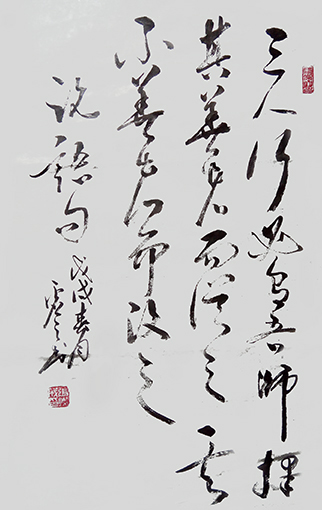 三人行必有吾師擇
其善者而從之其
不善者而改之
論語句
戊戌春月